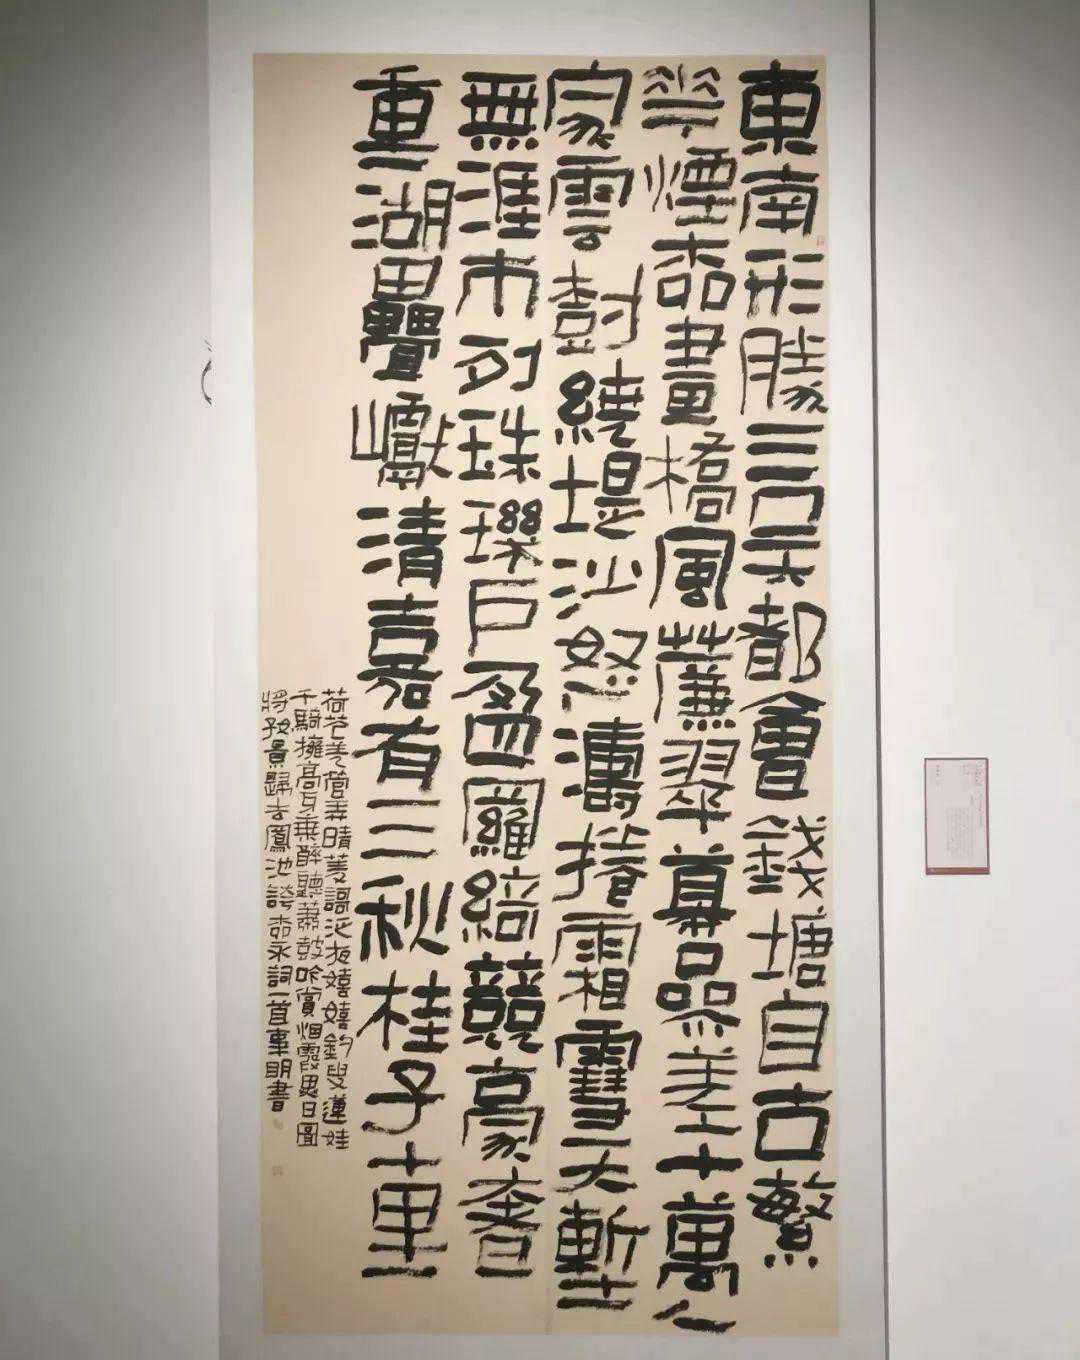 東南形勝三吳都會錢塘自古繁
華煙柳畫橋風簾翠幕參差十萬人
家雲樹繞堤沙怒濤捲霜雪天塹
無涯市列珠璣戶盈羅綺競豪奢
重湖疊巘清嘉有三秋桂子十里
荷花羌管弄晴菱歌泛夜嬉嬉釣叟蓮娃
千騎擁高牙乘醉聽蕭鼓吟賞烟霞異日圖
將好景歸去鳳池誇柳永詞一首明書